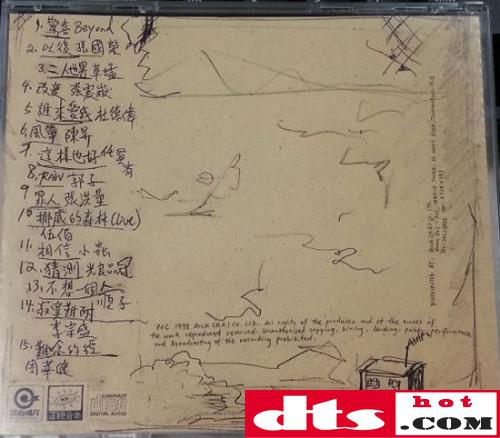 1. 驚喜 Beyond
2. 以後 張國榮
3. 二人世界 草蜢
4. 改变 張震嶽
5. 誰來愛我 杜德偉
6. 風箏 陳昇
7. 這樣也好 任賢
齊
8. RAIN 郭子
9 罪人 張洪量
10 挪威的森林(Live)
伍佰
11. 相信 小蟲
12. 猜測 光良品冠
13. 不想一個人
順子
14. 寂寞難耐
李宗盛
15. 難念的經
周華健
P+C 1998 ROCK (H.K.) CO. LTD. All rights of the producer and of the owner of
the work reproduced reserved. Unauthorised copying, hiring, lending, public performance
and broadcasting of the recording prohibited.
DISTRIBUTED BY: ROCK (H.K.) CO. LTD.
滾石唱片
正版音樂
COMPACT
disc
DIGITAL AUDIO
hot
dts
.COM